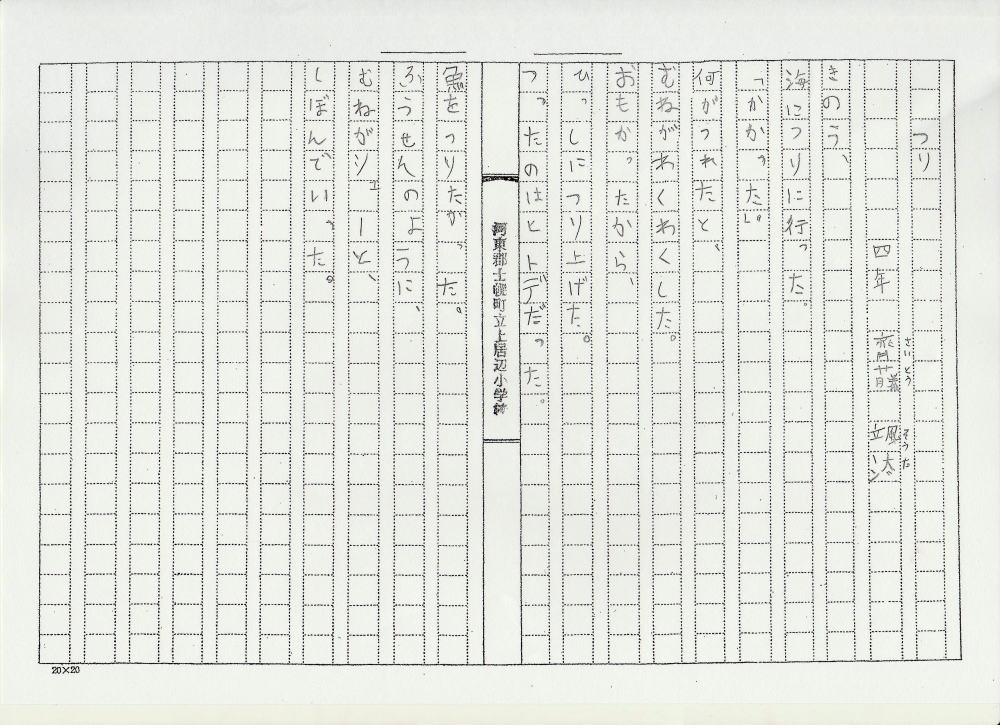 つり
四年 齊藤 颯太
さいとう そうた
きのう、
海につりに行った。
「かかった」。
何がつれたと、
むねがわくわくした。
おもかったから、
ひっしにつり上げた。
つったのはとトデだった。
河東郡士幌町立上居辺小学校
魚をつりたかった。
ふうせんのように、
むねがシューと、
しぼんでいった。
20×20